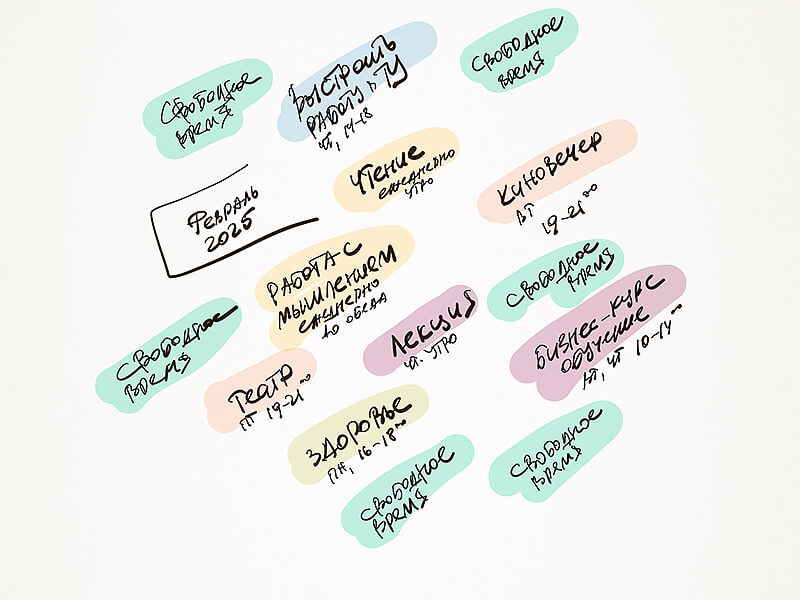 СВОБОДНОЕ
ВРЕМЯ
ВЫСТРОИТЬ
РАБОТУ
ТУ
ЧТ, 14-18
СВОБОДНОЕ
ВРЕМЯ
ЧТЕНИЕ
ЕЖЕДНЕВНО
УТРО
КИНОВЕЧЕР
ВТ
19-21⁰⁰
ФЕВРАЛЬ
2025
РАБОТА С
МЫШЛЕНИЕМ
ЕЖЕДНЕВНО
ДО ОБЕДА
СВОБОДНОЕ
ВРЕМЯ
СВОБОДНОЕ
ВРЕМЯ
ЛЕКЦИЯ
УТРО
БИЗНЕС-КУРС
ОБУЧЕНИЕ
ВТ, ЧТ 10-14⁰⁰
ТЕАТР
ПТ 19-21⁰⁰
ЗДОРОВЬЕ
ПН, 16-18⁰⁰
СВОБОДНОЕ
ВРЕМЯ
СВОБОДНОЕ
ВРЕМЯ